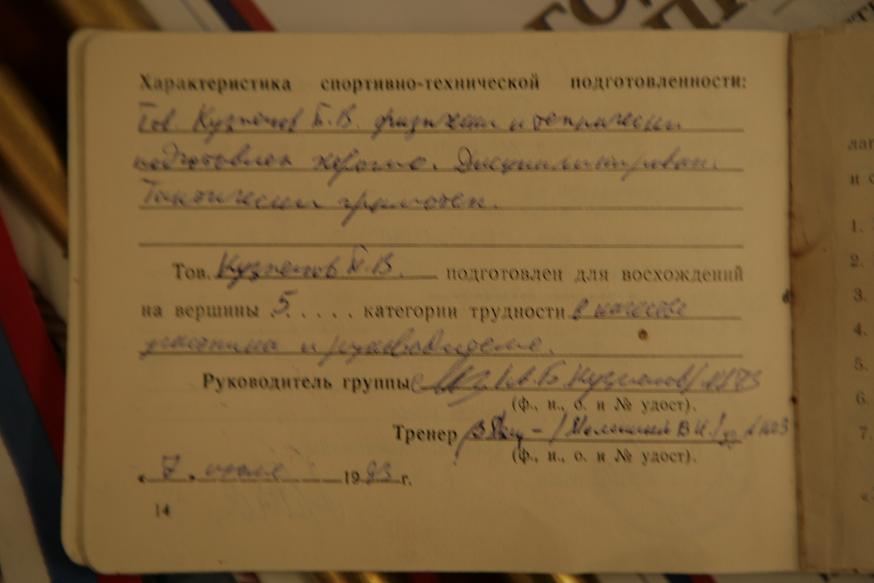 Характеристика спортивно-технической подготовленности:
Тов. Кузнецов Б.В. физически и технически
подготовлен хорошо. Дисциплинирован.
Тактически грамотен.
Тов. Кузнецов Б.В. подготовлен для восхождений
на вершины 5 . . . . . категории трудности в качестве
участника и руководителя.
Руководитель группы
(ф., и., о. и № удост).
Тренер
(ф., и., о. и № удост).
« 7 » июля 1983 г.
14
лаг
и с
1.
2.
3.
4.
5.
6.
7.